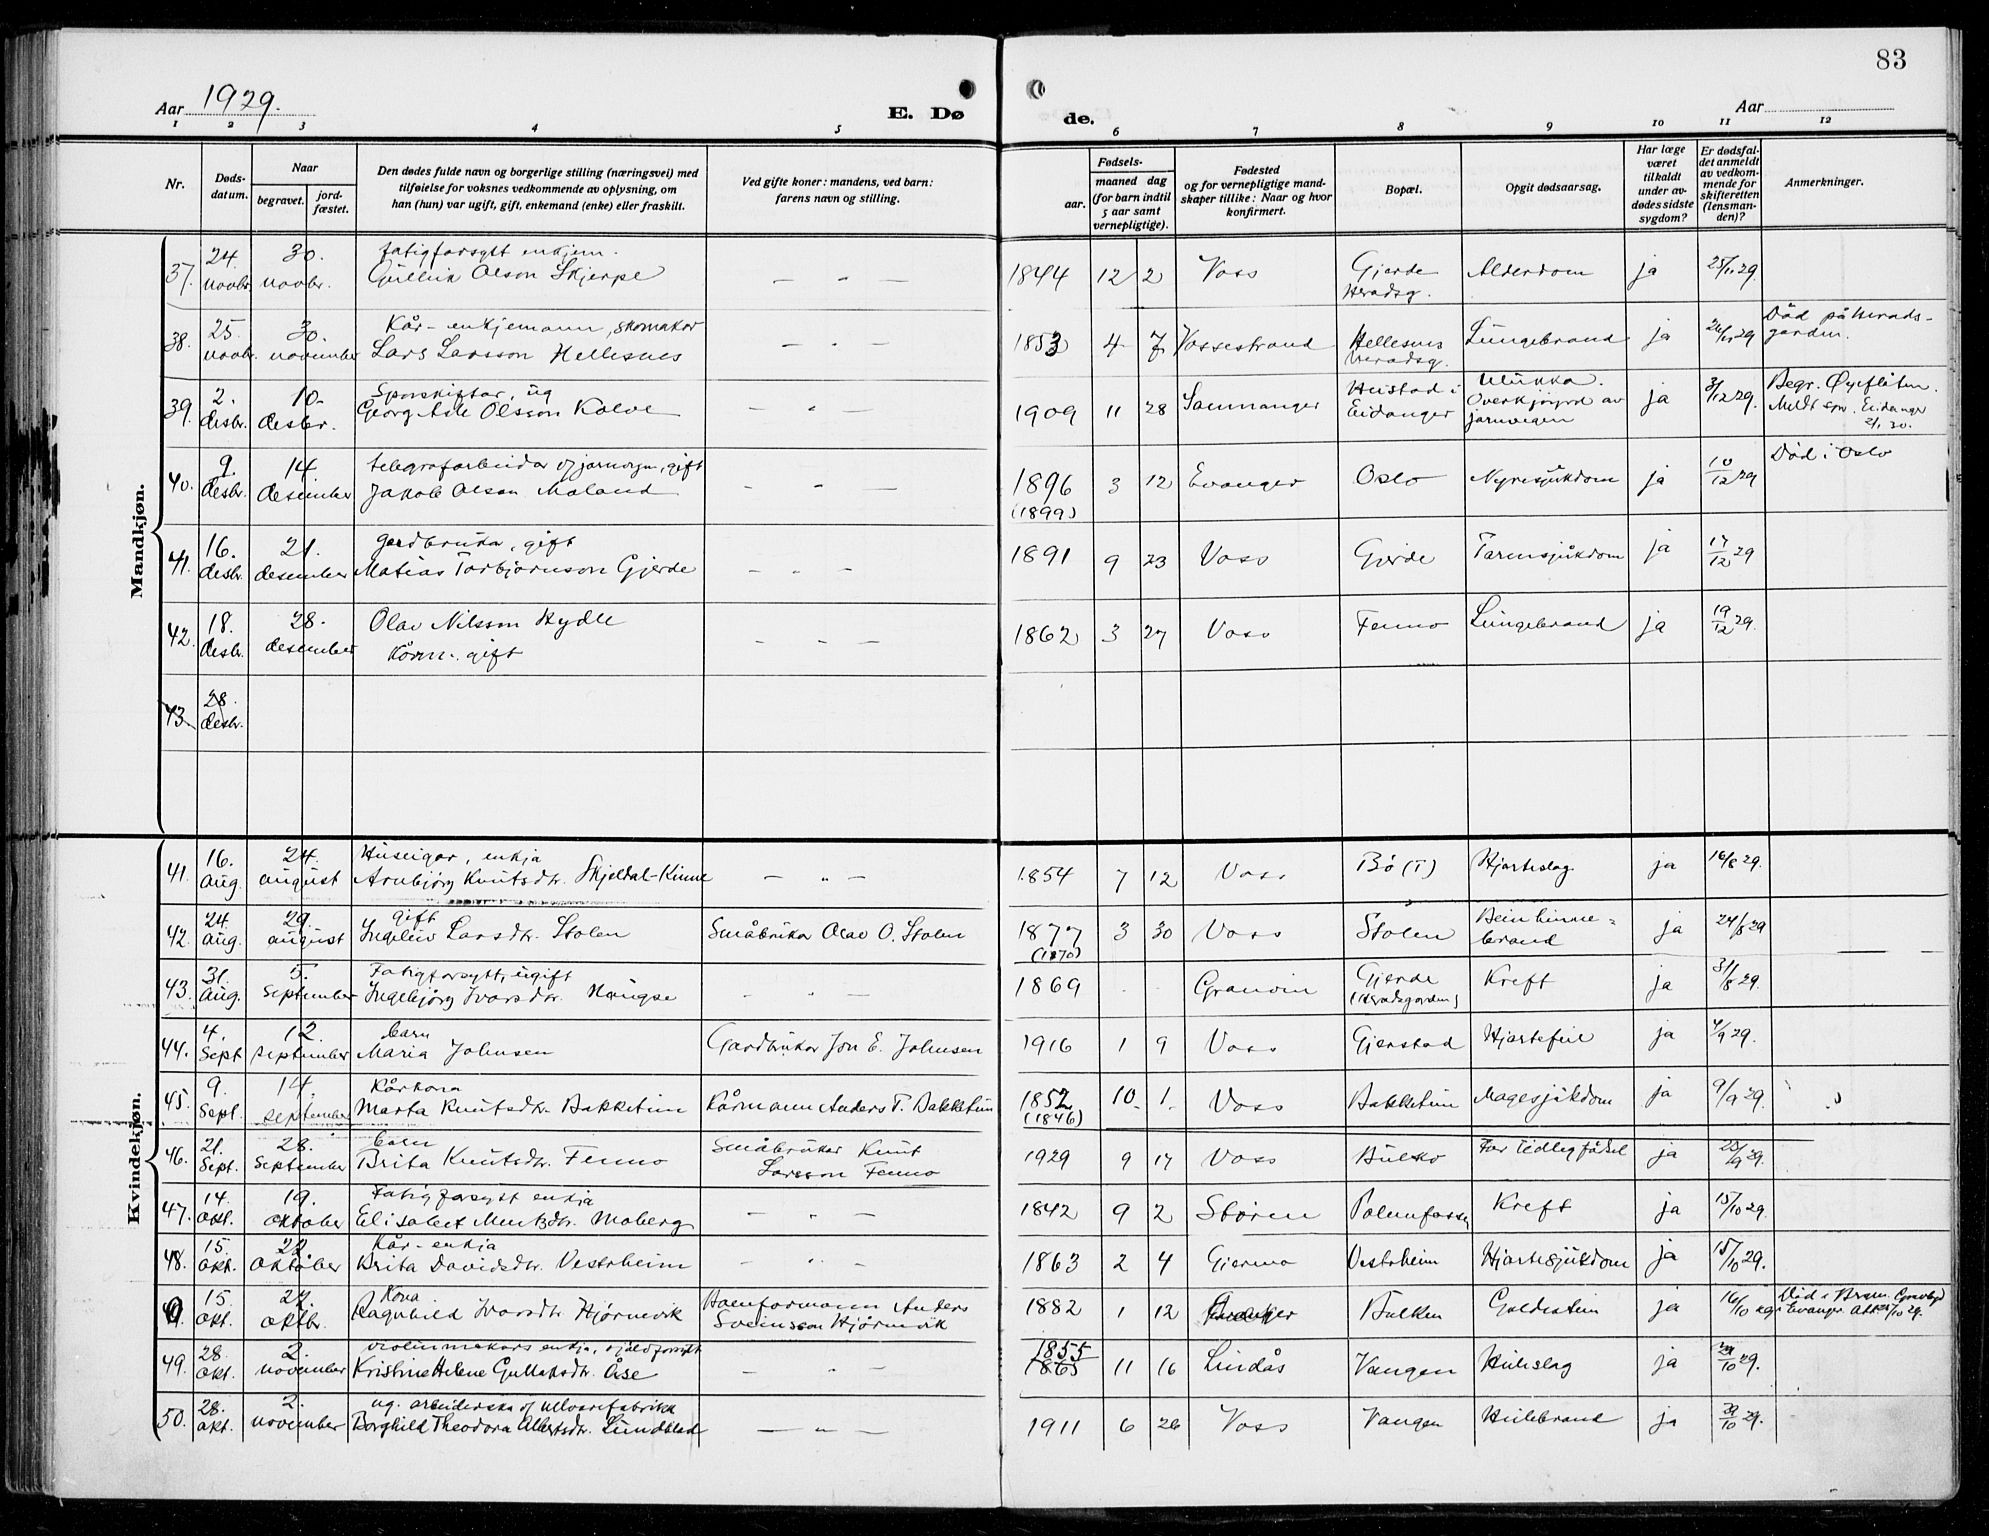 83
Aar 1929.
E. Døde.
Aar
1 2 3 4 5 6 7 8 9 10 11 12
Nr.
Døds-
datum.
Naar
begravet.
jord-
fæstet.
Den dødes fulde navn og borgerlige stilling (næringsvei) med
tilføielse for voksnes vedkommende av oplysning, om
han (hun) var ugift, gift, enkemand (enke) eller fraskilt.
Ved gifte koner: mandens, ved barn:
farens navn og stilling.
Fødsels-
aar.
maaned dag
(for barn indtil
5 aar samt
vernepligtige).
Fødested
og for vernepligtige mand-
skaper tillike: Naar og hvor
konfirmert.
Bopæl.
Opgit dødsaarsag.
Har læge
været
tilkaldt
under av-
dødes sidste
sygdom?
Er dødsfal-
det anmeldt
av vedkom-
mende for
skifteretten
(lensman-
den)?
Anmerkninger.
Mandkjøn.
37. 24. novbr. 30. novbr. fatigforsytt enkjem. Gullik Olson Skjerpe — " — 1844 12 2 Voss Gjerde Heradsg. Alderdom ja 25/11 29.
38. 25. novbr. 30. november Kår-enkjemann, skomakar Lars Larsson Hellesnes — " — 1853 4 7 Vossestrand Hellesnes Heradsg. Lungebrand ja 26/11 29 Død på Herads-
garden.
39. 2. desbr. 10. desbr. Sporskiftar, ug Georg Olsson Kolve — " — 1909 11 28 Samnanger Hustad i Eidanger Ulukka. Overkjøyrd av jarnvegen ja 3/12 29. Begr. Øyeflaten.
Meldt spr. Eidanger
2/1 30.
40. 9. desbr. 14. desember telegrafarbeidar v/jarnvegen, gift Jakob Olson Moland — " — 1896 (1899) 3 12 Evanger Oslo Nyresjukdom ja 10/12 29 Død i Oslo
41. 16. desbr. 21. desember gardbrukar, gift Matias Torbjørnson Gjerde — " — 1891 9 23 Voss Gjerde Tarmsjukdom ja 17/12 29
42. 18. desbr. 28. desember Olav Nilsson Hydle Kårm. gift — " — 1862 3 27 Voss Fenno Lungebrand ja 19/12 29.
43. 28. desbr.
Kvindekjøn.
41. 16. aug. 24. august Huseigar, enkja Arnbjørg Knutsdtr. Skjeldal-Kinne — " — 1854 7 12 Voss Bø (T) Hjarteslag ja 16/8 29.
42. 24. aug. 29. august gift Ingeleiv Larsdtr. Stolen Småbrukar Olav O. Stolen 1877 (1870) 3 30 Voss Stolen Beinhinne-
brand ja 24/8 29
43. 31. aug. 5. September Fatigforsytt, ugift Ingebjørg Ivarsdtr. Haugse — " — 1869 Granvin Gjerde (Heradsgarden) Kreft ja 31/8 29.
44. 4. Sept 12. September barn Maria Johnsen Gardbrukar Jon E. Johnsen 1916 1 9 Voss Gjerstad Hjartefeil ja 4/9 29.
45. 9. Sept. 14. september Kårkona Marta Knutsdtr. Bakketun Kårmann Anders T. Bakketun 1852 (1846) 10 1 Voss Bakketun Magesjukdom ja 9/9 29.
46. 21. Sept. 28. September barn Brita Knutsdtr. Fenno Småbrukar Knut
Larsson Fenno 1929 9 17 Voss Bulko For tidleg fødsel ja 23/9 29.
47. 14. okt. 19. oktober Fatigforsytt enkja Elisabet Mentsdtr. Moberg — " — 1842 9 2 Støren Palmafossen Kreft ja 15/10 29.
48. 15. okt. 22. Oktober Kår-enkja Brita Davidsdtr. Vestrheim — " — 1863 2 4 Gjerme Vestrheim Hjartesjukdom ja 15/10 29.
15. okt. 22. oktbr. Kona Ragnhild Ivarsdtr. Hjørnevik Baneformann Anders
Sveinsson Hjørnevik 1882 1 12 Bulken Galdestein ja 16/10
49. 28. okt. 2. november violinmakars enkja, sjølvforsytt Kristine Helene Gullaksdtr. Åse — " — 1855 1865 11 16 Lindås Vangen ja 29/10 29.
50. 28. okt. 2. november ug. arbeiderska v/ ullvarefabrikk Borghild Theodora Albertsdtr. Lundblad — " — 1911 6 26 Voss Vangen ja 29/10 29.